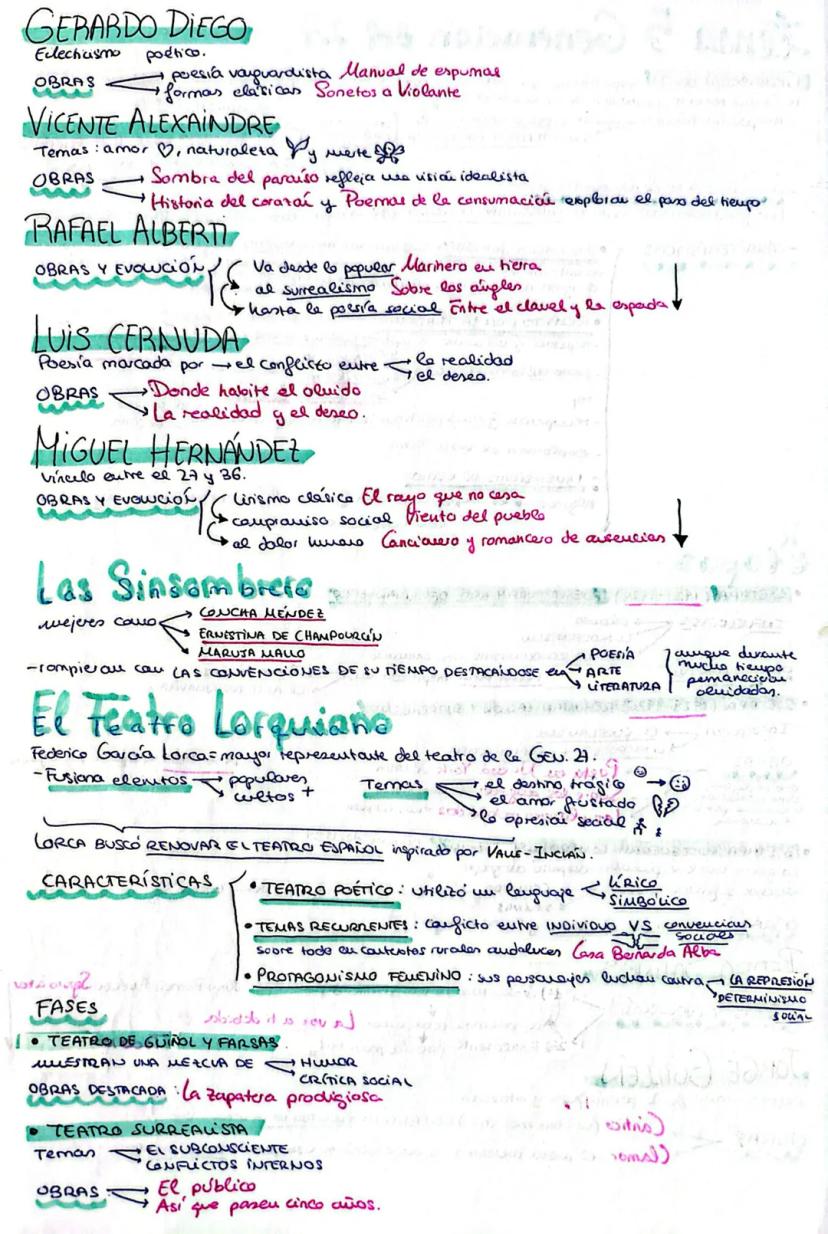 GERARDO DIEGO
Eclecticismo poético.
OBRAS → poesía vanguardista Manual de espumas
→ formas clásicas Sonetos a Violante
VICENTE ALEXAINDRE
Temas: amor ♡, naturaleza y muerte
OBRAS → Sombra del paraíso refleja una visión idealista
→ Historia del corazón y Poemas de la consumación exploran el paso del tiempo
RAFAEL ALBERTI
OBRAS Y EVOLUCIÓN Va desde lo popular Marinero en tierra.
al surrealismo Sobre los ángles
hasta la poesía social Entre el clavel y la espada
LUIS CERNUDA
Poesía marcada por → el conflicto entre → la realidad
→ el deseo.
OBRAS → Donde habite el olvido
→ La realidad y el deseo.
MIGUEL HERNÁNDEZ
vínculo entre el 27 y 36.
OBRAS Y EVOLUCIÓN Lirismo clásico El rayo que no cesa
compromiso social Viento del pueblo
al dolor humano Cancionero y romancero de ausencias
Las Sinsombrero
mujeres como → CONCHA MÉNDEZ
→ ERNESTINA DE CHAMPOURCÍN
→ MARUJA MALLO
- rompieron con LAS CONVENCIONES DE SU TIEMPO DESTACÁNDOSE en → POESÍA
→ ARTE
→ LITERATURA
aunque durante
mucho tiempo
permanecieron
olvidadas.
El Teatro Lorquiano
Federico García Lorca = mayor representante del teatro de la Gen. 27.
- Fusiona elementos → populares
→ cultos +
Temas → el destino trágico
→ el amor frustado
→ la opresión social
LORCA BUSCÓ RENOVAR EL TEATRO ESPAÑOL inspirado por VALLE-INCLÁN.
CARACTERÍSTICAS
• TEATRO POÉTICO: utilizó un lenguaje → LÍRICO
→ SIMBÓLICO
• TEMAS RECURRENTES: conflicto entre INDIVIDUO VS convenciones
sociales
sobre todo en contextos rurales andaluces Casa Bernarda Alba
• PROTAGONISMO FEMENINO: sus personajes luchan contra → LA REPRESIÓN
→ DETERMINISMO
SOCIAL
FASES
• TEATRO DE GUIÑOL Y FARSAS
MUESTRAN UNA MEZCLA DE → HUMOR
→ CRÍTICA SOCIAL
OBRAS DESTACADA: La zapatera prodigiosa
• TEATRO SURREALISTA
Temas → EL SUBCONSCIENTE
→ CONFLICTOS INTERNOS
OBRAS → El público
→ Así que pasen cinco años.